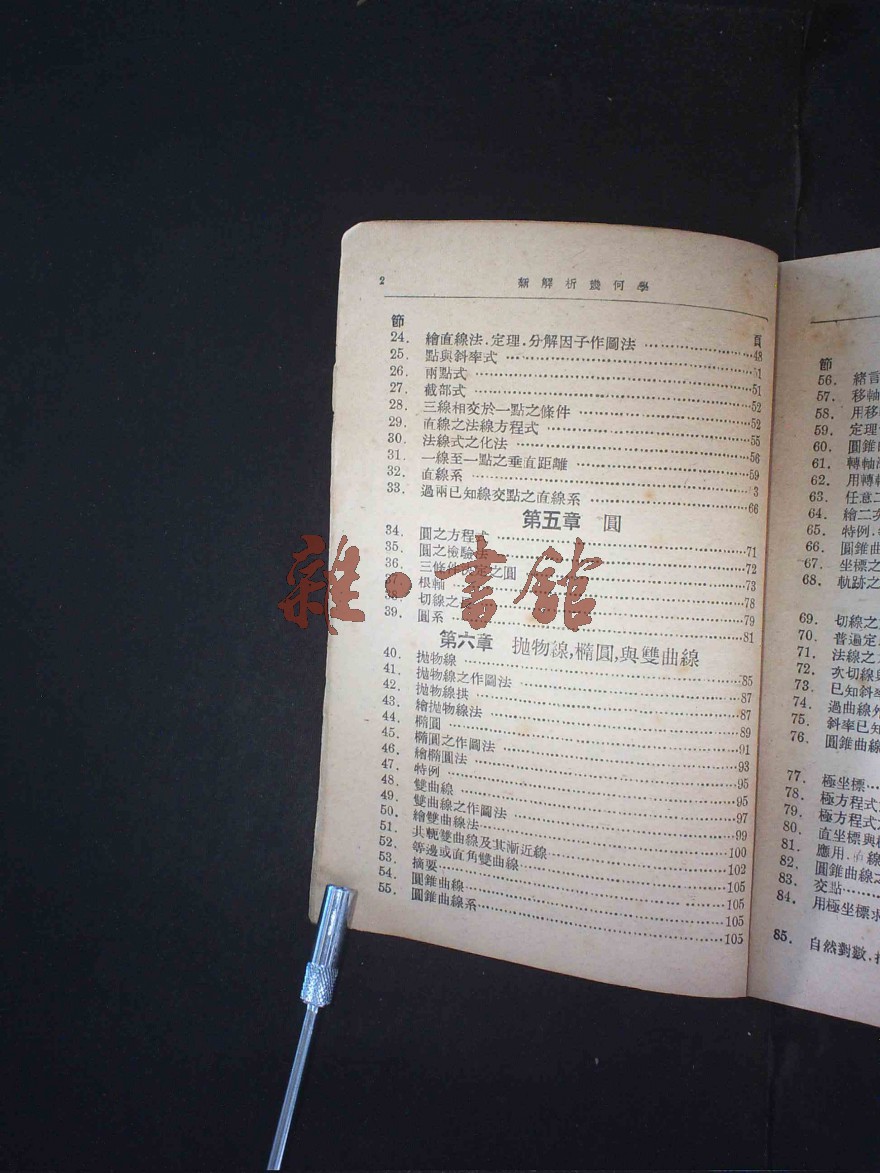 2 新解析幾何學
節 頁
24. 繪直線法.定理.分解因子作圖法 48
25. 點與斜率式 51
26. 兩點式 51
27. 截部式 52
28. 三線相交於一點之條件 52
29. 直線之法線方程式 55
30. 法線式之化法 56
31. 一線至一點之垂直距離 59
32. 直線系 3
33. 過兩已知線交點之直線系 66
第五章 圓
34. 圓之方程式 71
35. 圓之檢驗法 72
36. 三條件決定之圓 73
37. 根軸 78
38. 切線之長 79
39. 圓系 81
第六章 拋物線,橢圓,與雙曲線
40. 拋物線 85
41. 拋物線之作圖法 87
42. 拋物線拱 87
43. 繪拋物線法 89
44. 橢圓 91
45. 橢圓之作圖法 93
46. 繪橢圓法 95
47. 特例 95
48. 雙曲線 97
49. 雙曲線之作圖法 99
50. 繪雙曲線法 100
51. 共軛雙曲線及其漸近線 102
52. 等邊或直角雙曲線 105
53. 摘要 105
54. 圓錐曲線 105
55. 圓錐曲線系 105
節
56. 緒言
57. 移軸
58. 用移
59. 定理
60. 圓錐曲
61. 轉軸
62. 用轉
63. 任意二
64. 繪二次
65. 特例
66. 圓錐曲
67. 坐標之
68. 軌跡之
69. 切線之
70. 普遍定
71. 法線之
72. 次切線
73. 已知斜
74. 過曲線外
75. 斜率已知
76. 圓錐曲線
77. 極坐標
78. 極方程式
79. 極方程式
80. 直坐標與
81. 應用.直線
82. 圓錐曲線之
83. 交點
84. 用極坐標求
85. 自然對數.
雜·書館